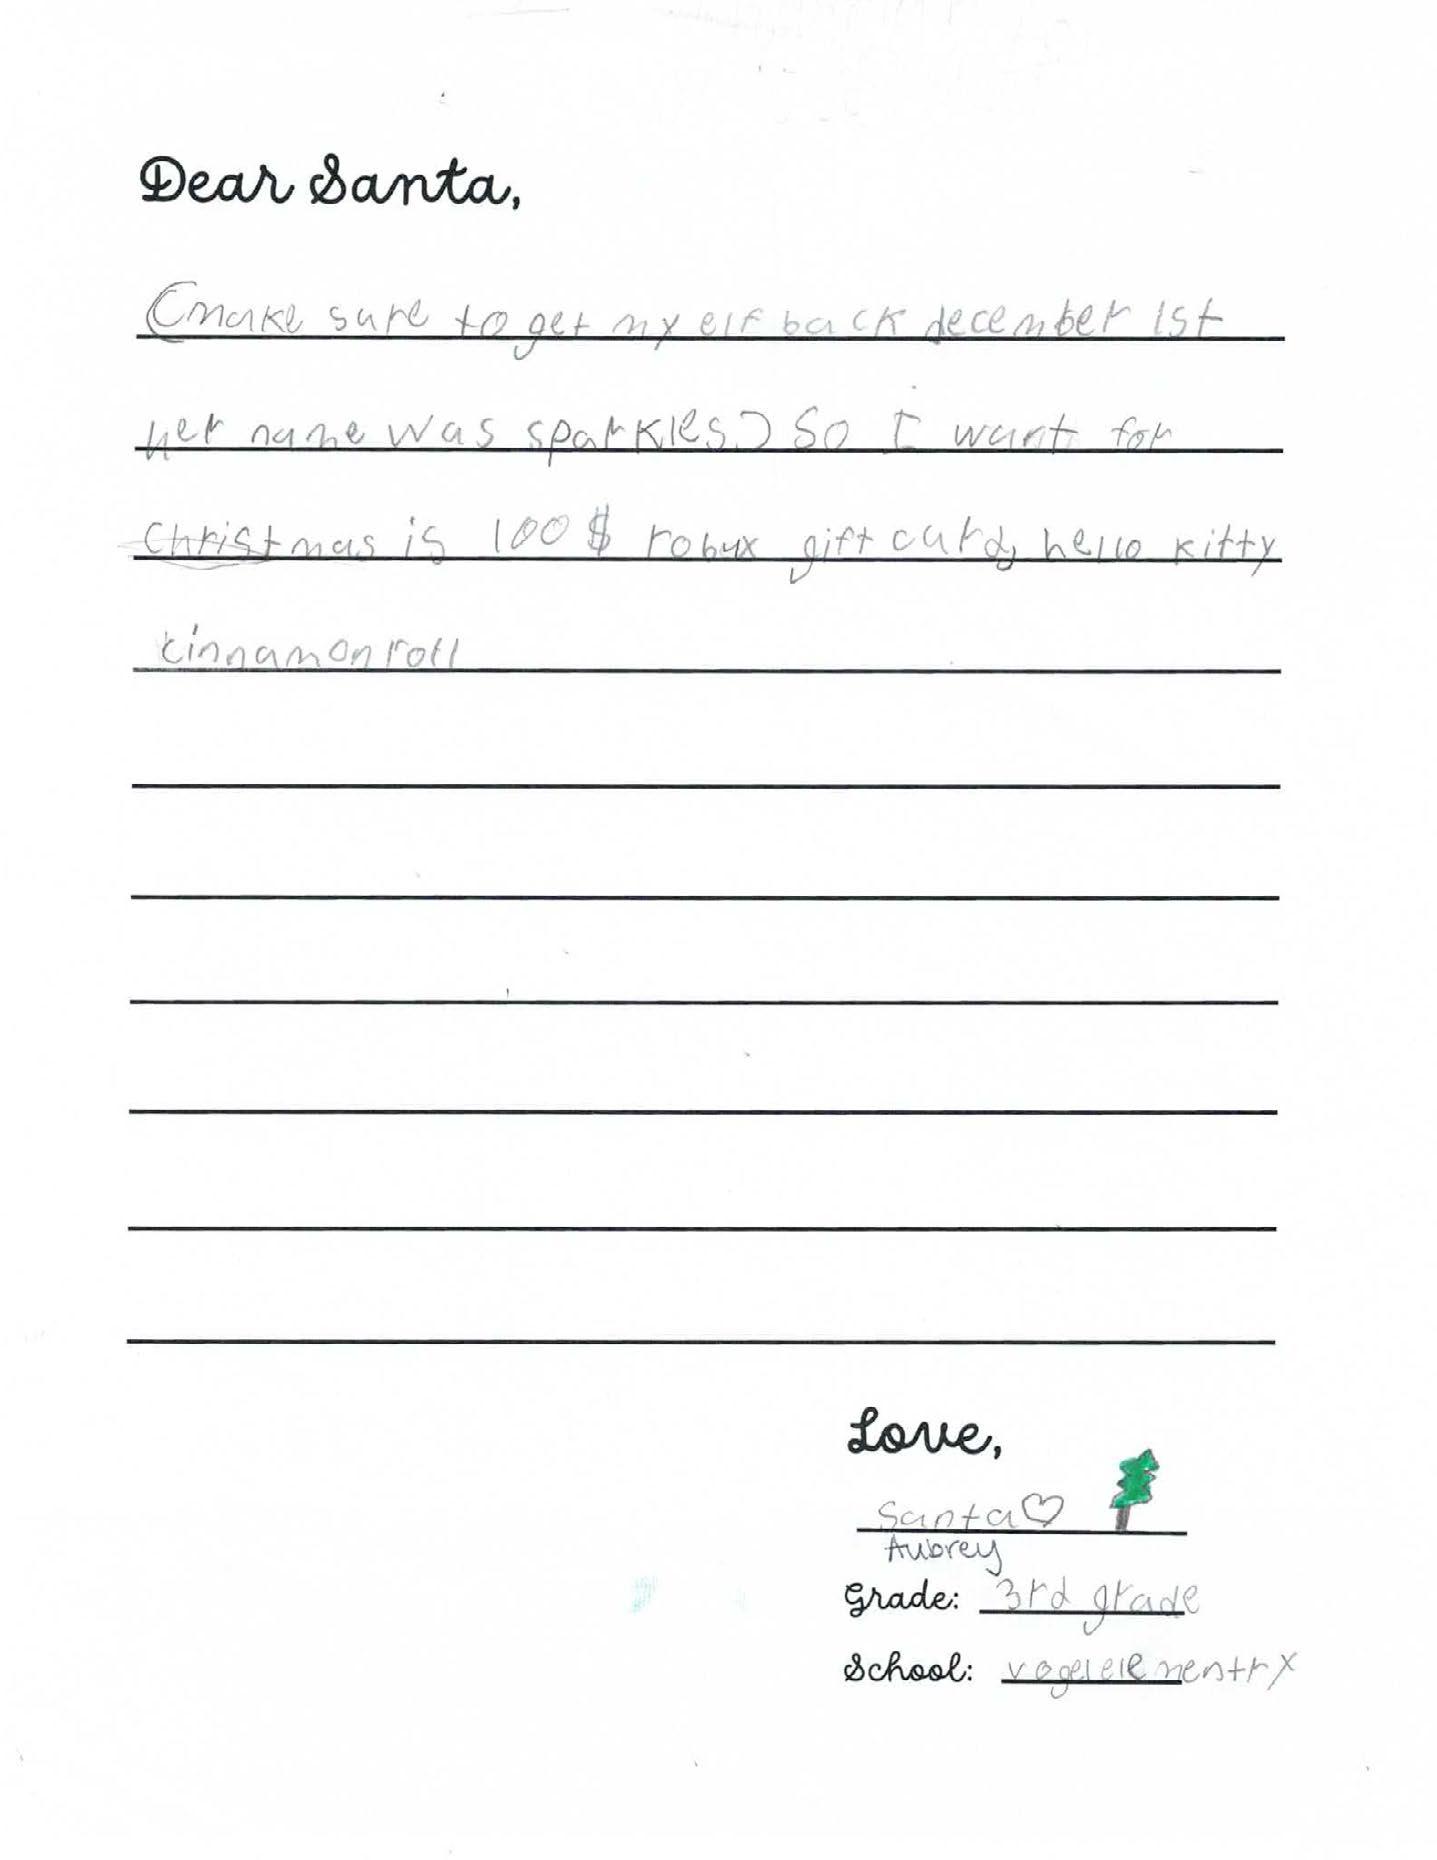 Dear Santa,
(make sure to get my elf back december 1st
her name was sparkles) So I want for
Christmas is 100$ robux gift card, hello kitty
cinnamonroll
Love,
Santa♡
Aubrey
Grade: 3rd grade
School: vogel elementry